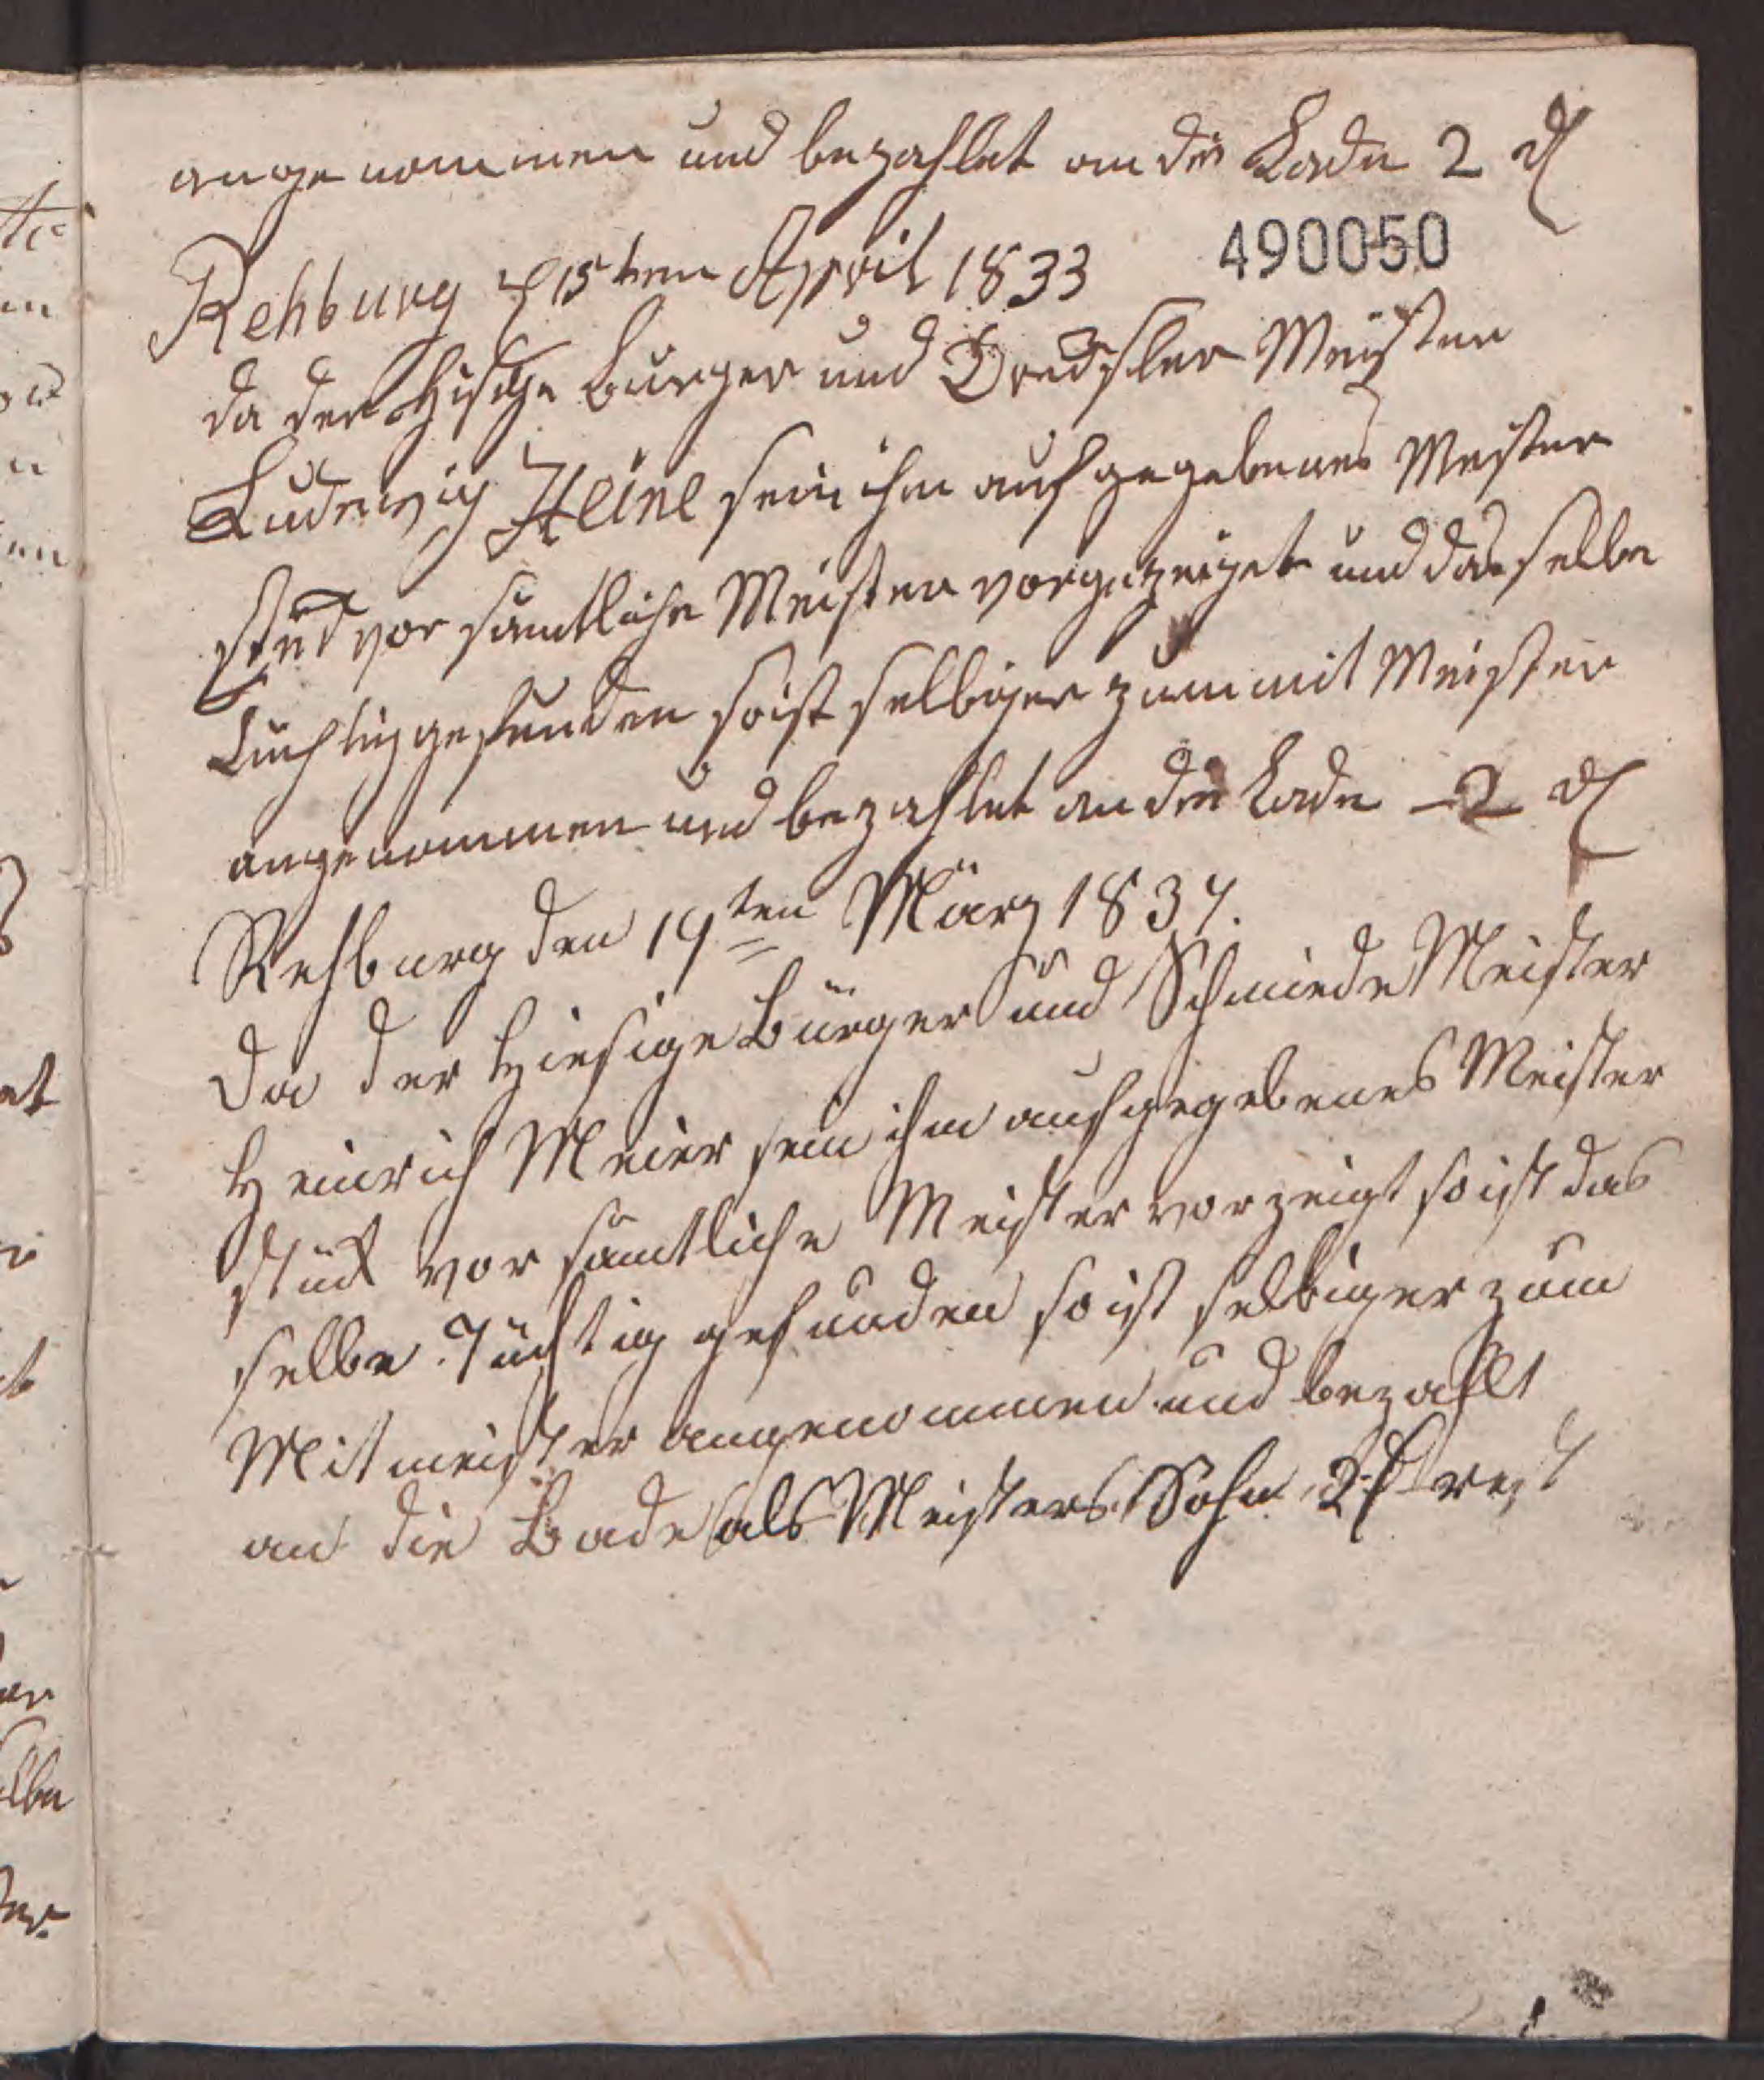 angenommen und bezahlet an die Lade 2 rl
490050
Rehburg d 15ten April 1833
da der Hisige Burger und Drechsler Meister
Ludewig Heine sein ihm aufgegebenes Meister
stük vor sämtliche Meister vorgezeiget und das selbe
Tuchtig gefunden so ist selbiger zum mit Meister
angenommen und bezahlet an die Lade 2 rl
Rehburg den 19ten März 1837.
Da der Hiesige Bürger und Schmiede Meister
Heinrich Meier sein ihm aufgegebenes Meister
stük vor sämtliche Meister vorzeigt so ist das
selbe Tüchtig gefunden so ist selbiger zum
Mitmeister angenommen und bezahlt
an die Lade als Meisters Sohn 2